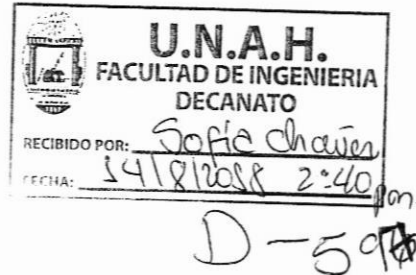 U.N.A.H.
FACULTAD DE INGENIERIA
DECANATO
RECIBIDO POR: Sofia Chavez
FECHA: 14/8/2018 2:40 pm
D-59